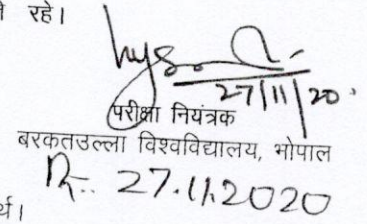 रहे।
27/11/20
परीक्षा नियंत्रक
बरकतउल्ला विश्वविद्यालय, भोपाल
27.11.2020
र्थ।